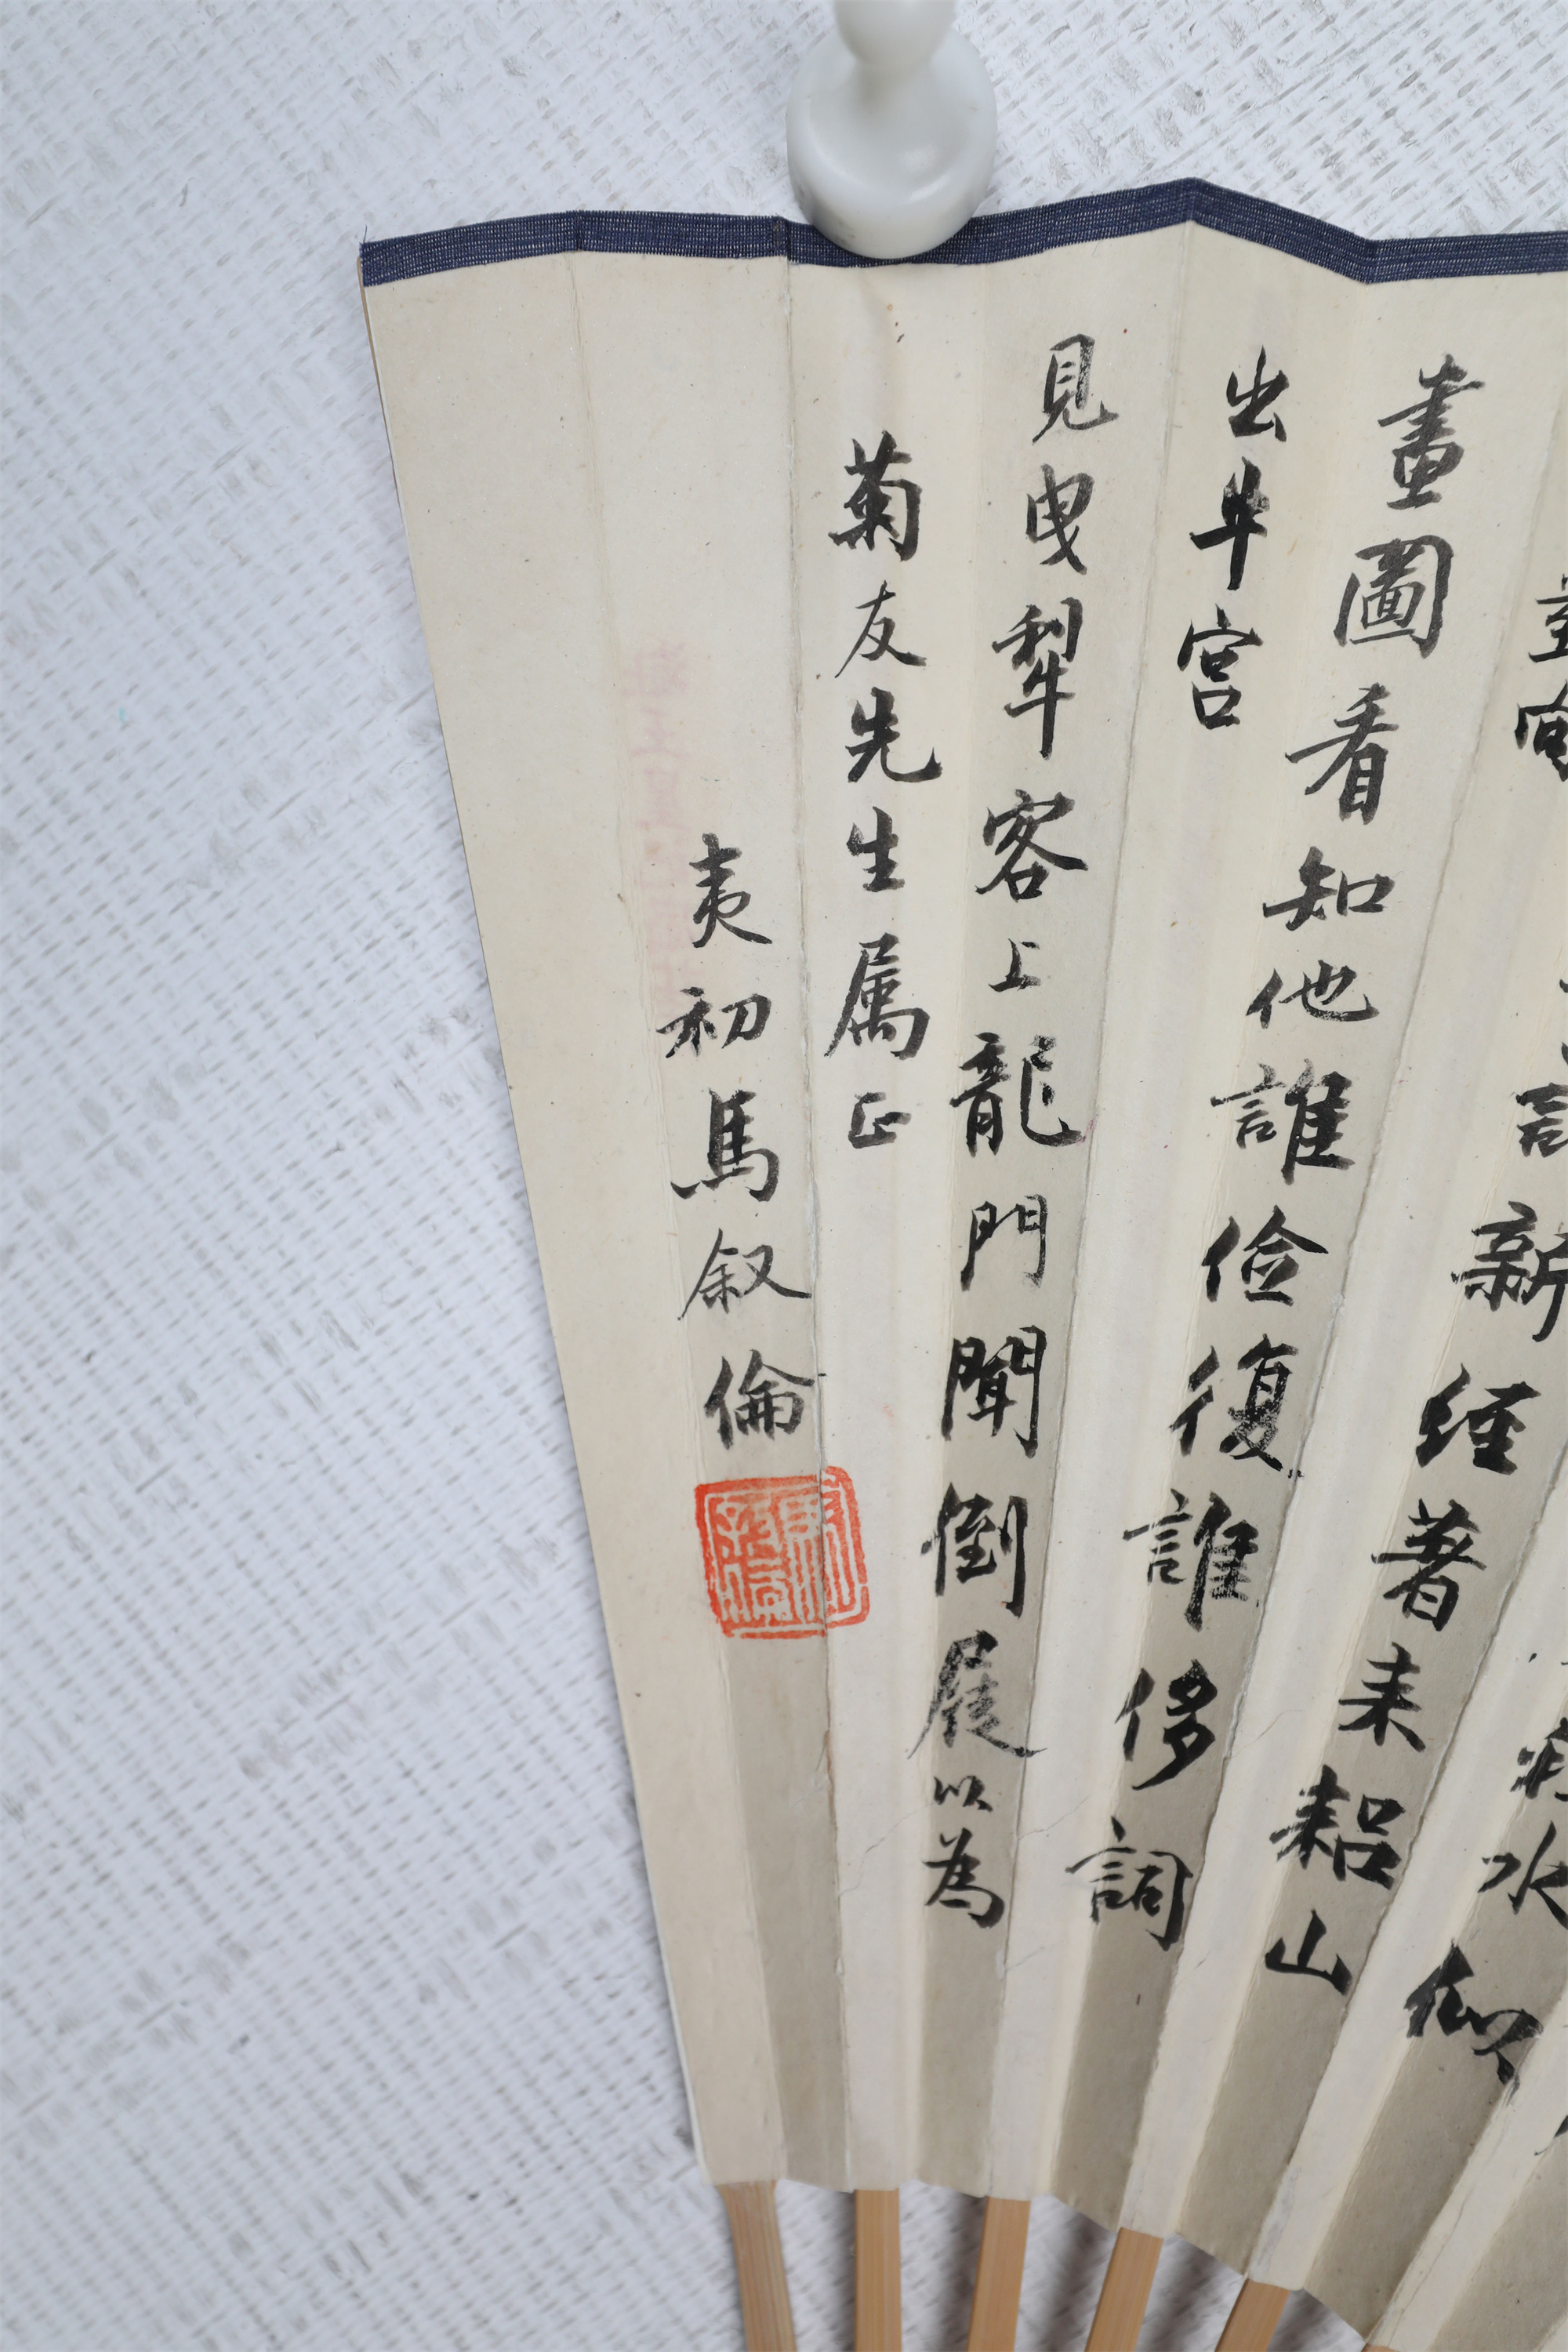 水
新經著耒耜山
畫圖看知他誰儉復誰侈詞
出牛宮
見曳犁客上龍門聞倒屐以為
菊友先生屬正
夷初馬叙倫